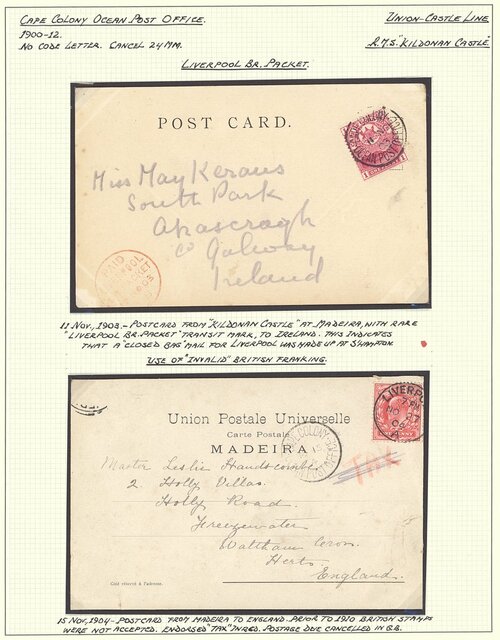 CAPE COLONY OCEAN POST OFFICE.
UNION-CASTLE LINE
1900-12.
NO CODE LETTER. CANCEL 24MM.
R.M.S. "KILDONAN CASTLE"
LIVERPOOL BR. PACKET.
POST CARD.
Miss May Kerans
South Park
Ahascragh
Co Galway
Ireland
PAID
11 NOV, 1903. - POSTCARD FROM "KILDONAN CASTLE" AT MADEIRA, WITH RARE
"LIVERPOOL BR. PACKET" TRANSIT MARK, TO IRELAND. THIS INDICATES
THAT A "CLOSED BAG" MAIL FOR LIVERPOOL WAS MADE UP AT S'HAMPTON.
USE OF "INVALID" BRITISH FRANKING.
LIVERPO
Union Postale Universelle
Carte Postale
MADEIRA
TAX
Master Leslie
2 Holly Villas
Holly Road.
Freezywater
Waltham Cross.
Herts.
England.
Coté réservé à l'adresse.
15 NOV, 1904 - POSTCARD FROM MADEIRA TO ENGLAND. PRIOR TO 1910 BRITISH STAMPS
WERE NOT ACCEPTED. ENDORSED "TAX" IN RED. POSTAGE DUE CANCELLED IN G.B.